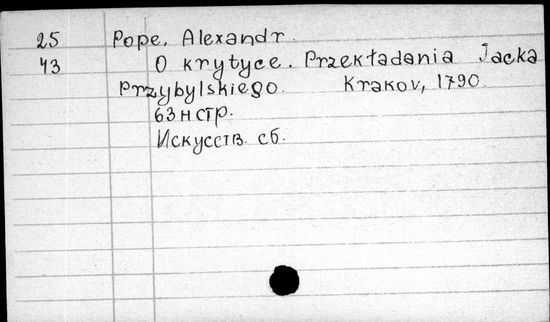 25 Pope, Alexandr.
43 O krytyce. Przekładania Jacka
Przybylskiego. Krakov, 1790.
63 н стр.
Искусств. сб.